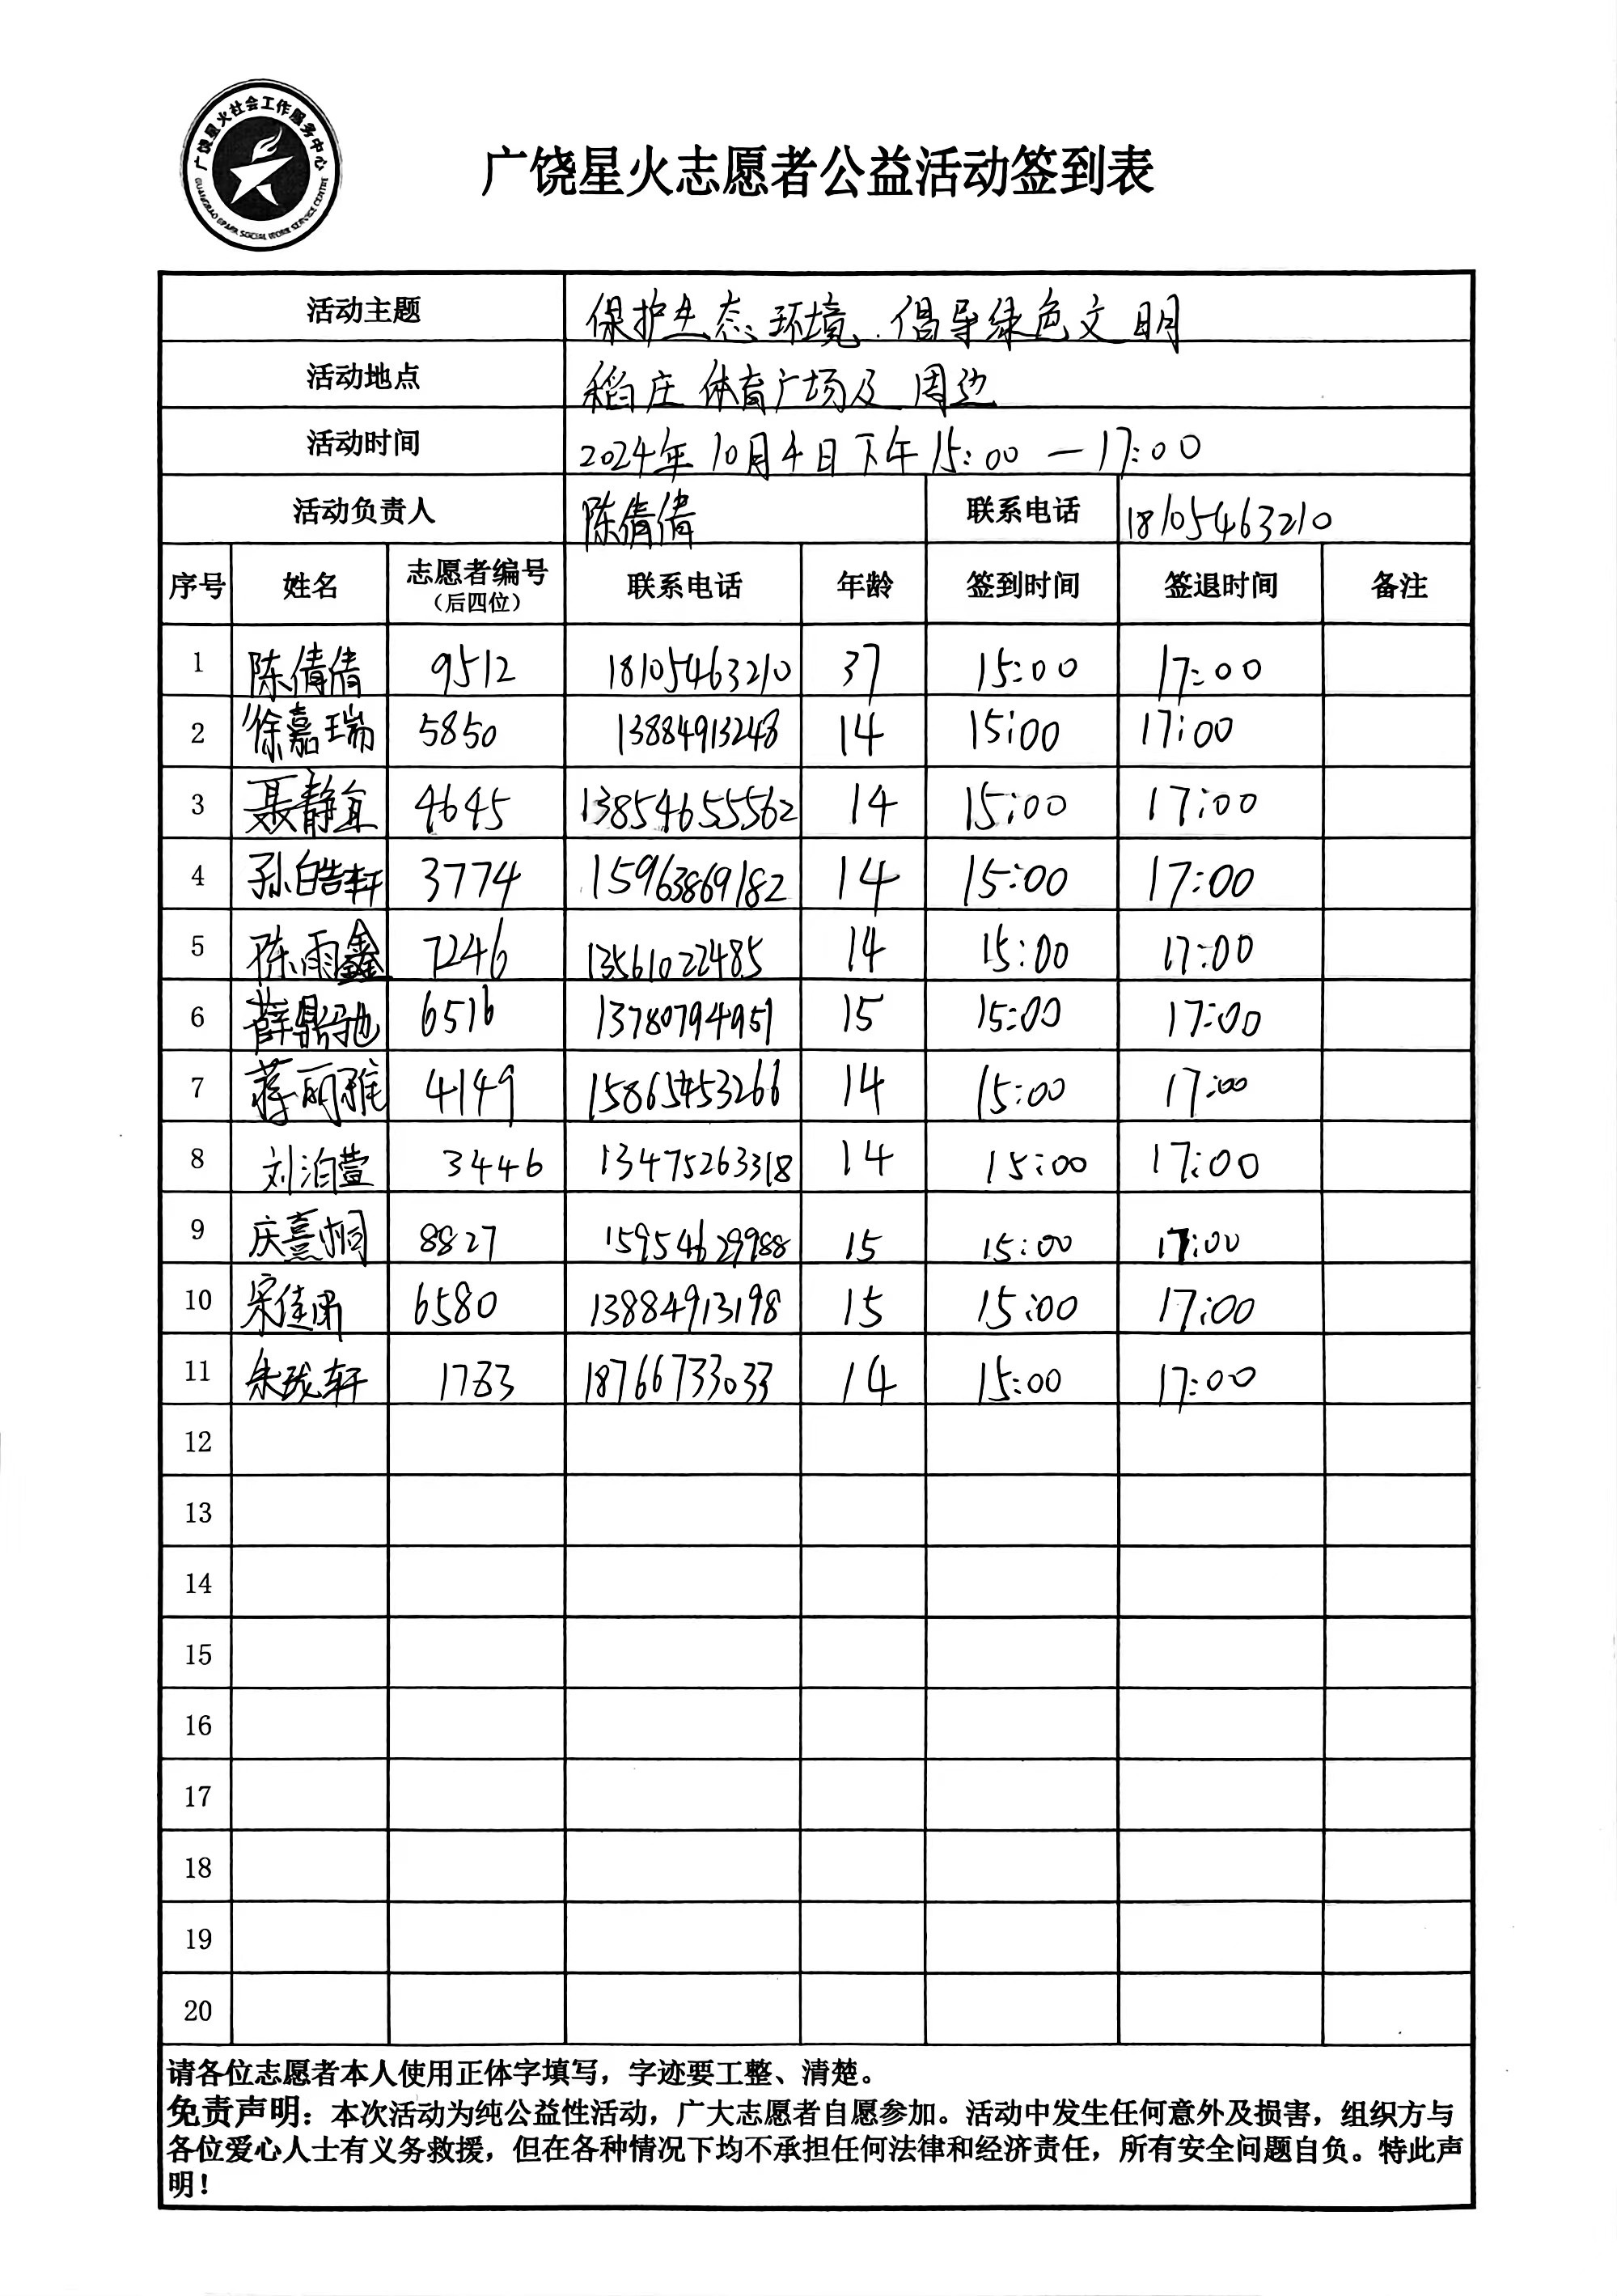 广饶星火社会工作服务中心
GUANGRAO SPARK SOCIAL WORK SERVICE CENTRE
广饶星火志愿者公益活动签到表
活动主题 保护生态环境.倡导绿色文明
活动地点 稻庄体育广场及周边
活动时间 2024年10月4日下午15:00—17:00
活动负责人 陈倩倩 联系电话 18105463210
序号 姓名 志愿者编号（后四位） 联系电话 年龄 签到时间 签退时间 备注
1 陈倩倩 9512 18105463210 37 15:00 17:00
2 徐嘉瑞 5850 13884913248 14 15:00 17:00
3 聂静宜 4645 13854655562 14 15:00 17:00
4 孙皓轩 3774 15963869182 14 15:00 17:00
5 陈雨鑫 7246 13561022485 14 15:00 17:00
6 薛鼎驰 6516 13780794951 15 15:00 17:00
7 蒋丽雅 4149 15865453266 14 15:00 17:00
8 刘泊萱 3446 13475263318 14 15:00 17:00
9 庆熹桐 8827 15954629988 15 15:00 17:00
10 宋佳 6580 13884913198 15 15:00 17:00
11 朱珑轩 1763 18766733033 14 15:00 17:00
12
13
14
15
16
17
18
19
20
请各位志愿者本人使用正体字填写，字迹要工整、清楚。
免责声明：本次活动为纯公益性活动，广大志愿者自愿参加。活动中发生任何意外及损害，组织方与
各位爱心人士有义务救援，但在各种情况下均不承担任何法律和经济责任，所有安全问题自负。特此声
明！